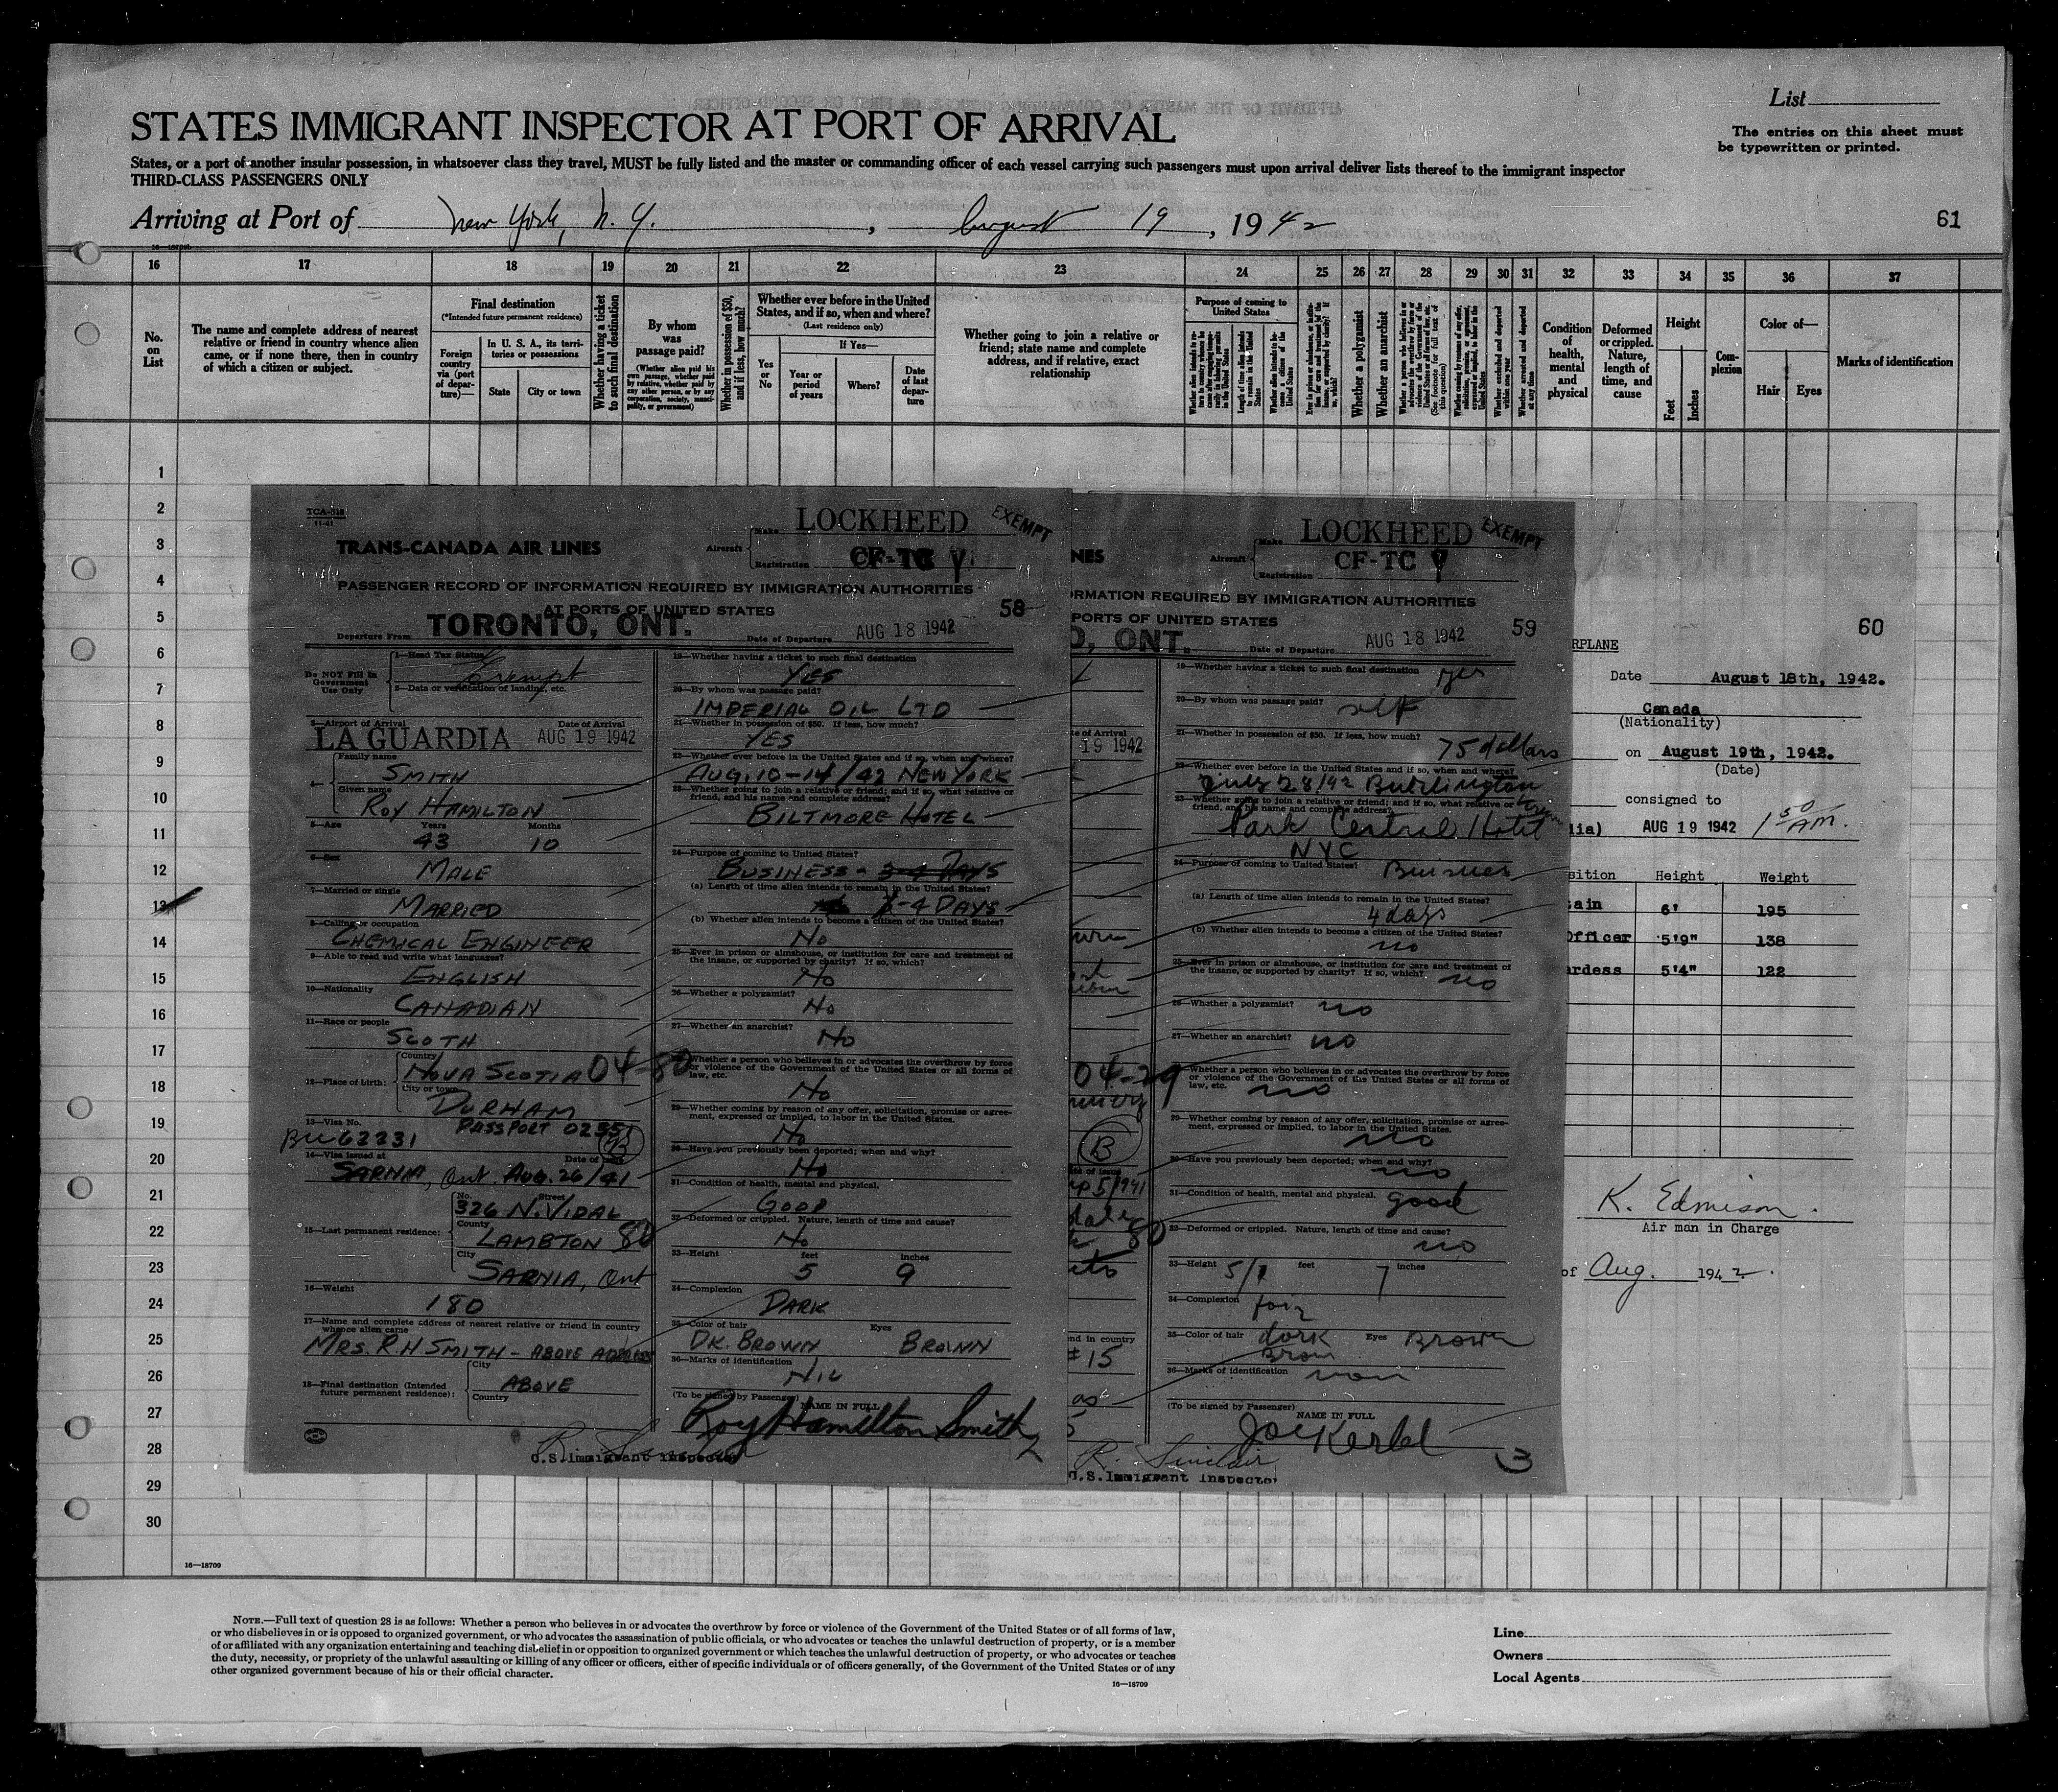 List
STATES IMMIGRANT INSPECTOR AT PORT OF ARRIVAL
The entries on this sheet must
be typewritten or printed.
States, or a port of another insular possession, in whatsoever class they travel, MUST be fully listed and the master or commanding officer of each vessel carrying such passengers must upon arrival deliver lists thereof to the immigrant inspector
THIRD-CLASS PASSENGERS ONLY
Arriving at Port of New York, N.Y., August 19, 1942
61
16 17 18 19 20 21 22 23 24 25 26 27 28 29 30 31 32 33 34 35 36 37
No. on List
The name and complete address of nearest
relative or friend in country whence alien
came, or if none there, then in country
of which a citizen or subject.
Final destination
(*Intended future permanent residence)
Foreign country via (port of departure)—
In U. S. A., its territories or possessions
State
City or town
Whether having a ticket to such final destination
By whom was passage paid?
(Whether alien paid his own passage, whether paid by relative, whether paid by any other person, or by any corporation, society, municipality, or government)
Whether in possession of $50, and if less, how much?
Whether ever before in the United States, and if so, when and where?
(Last residence only)
Yes or No
If Yes—
Year or period of years
Where?
Date of last departure
Whether going to join a relative or
friend; state name and complete
address, and if relative, exact
relationship
Purpose of coming to United States
Length of time alien intends to remain in the United States
Whether a polygamist
Whether an anarchist
Whether arrested and deported at any time
Condition of health, mental and physical
Deformed or crippled. Nature, length of time, and cause
Height
Feet
Inches
Complexion
Color of—
Hair
Eyes
Marks of identification
1
2
3
4
5
6
7
8
9
10
11
12
13
14
15
16
17
18
19
20
21
22
23
24
25
26
27
28
29
30
TCA-318
11-41
TRANS-CANADA AIR LINES
Aircraft
Make LOCKHEED
Registration CF-TC
EXEMPT
PASSENGER RECORD OF INFORMATION REQUIRED BY IMMIGRATION AUTHORITIES
AT PORTS OF UNITED STATES
58
Departure From TORONTO, ONT.
Date of Departure AUG 18 1942
Do NOT Fill in
Government
Use Only
1—Head Tax Status Exempt
2—Data or verification of landing, etc.
3—Airport of Arrival LA GUARDIA
Date of Arrival AUG 19 1942
4—
Family name SMITH
Given name ROY HAMILTON
5—Age Years 43 Months 10
6—Sex MALE
7—Married or single MARRIED
8—Calling or occupation CHEMICAL ENGINEER
9—Able to read and write what languages? ENGLISH
10—Nationality CANADIAN
11—Race or people SCOTH
12—Place of birth:
Country NOVA SCOTIA 04-80
City or town DURHAM
13—Visa No. PASSPORT
BU62231
B
14—Visa issued at SARNIA, Ont. AUG. 26/41
15—Last permanent residence:
No. Street 326 N. VIDAL
County LAMBTON 80
City SARNIA, Ont
16—Weight 180
17—Name and complete address of nearest relative or friend in country
whence alien came
MRS. R.H SMITH - ABOVE ADDRESS
18—Final destination (Intended
future permanent residence):
City ABOVE
Country
19—Whether having a ticket to such final destination
YES
20—By whom was passage paid?
IMPERIAL OIL LTD
21—Whether in possession of $50. If less, how much?
YES
22—Whether ever before in the United States and if so, when and where?
AUG. 10-14/42 NEW YORK
23—Whether going to join a relative or friend; and if so, what relative or
friend, and his name and complete address?
BILTMORE HOTEL
24—Purpose of coming to United States?
BUSINESS - 3-4 DAYS
(a) Length of time alien intends to remain in the United States?
-4 DAYS
(b) Whether alien intends to become a citizen of the United States?
NO
25—Ever in prison or almshouse, or institution for care and treatment of
the insane, or supported by charity? If so, which?
NO
26—Whether a polygamist?
NO
27—Whether an anarchist?
NO
Whether a person who believes in or advocates the overthrow by force
or violence of the Government of the United States or all forms of
law, etc.
NO
29—Whether coming by reason of any offer, solicitation, promise or agree-
ment, expressed or implied, to labor in the United States.
NO
30—Have you previously been deported; when and why?
NO
31—Condition of health, mental and physical.
GOOD
32—Deformed or crippled. Nature, length of time and cause?
NO
33—Height feet 5 inches 9
34—Complexion
DARK
35—Color of hair DK. BROWN Eyes BROWN
36—Marks of identification
NIL
(To be signed by Passenger)
NAME IN FULL
Roy Hamilton Smith
2
R. Sinclair
U.S. Immigrant Inspector
NES
Aircraft
Make LOCKHEED
Registration CF-TC
EXEMPT
ORMATION REQUIRED BY IMMIGRATION AUTHORITIES
PORTS OF UNITED STATES
59
O, ONT.
Date of Departure AUG 18 1942
te of Arrival
19 1942
04-29
B
80
nd in country
#15
19—Whether having a ticket to such final destination
yes
20—By whom was passage paid?
self
21—Whether in possession of $50. If less, how much?
75 dollars
22—Whether ever before in the United States and if so, when and where?
July 28/42 Burlington
23—Whether going to join a relative or friend; and if so, what relative or
friend, and his name and complete address?
Park Central Hotel
NYC
24—Purpose of coming to United States?
Buisnes
(a) Length of time alien intends to remain in the United States?
4 days
(b) Whether alien intends to become a citizen of the United States?
no
25—Ever in prison or almshouse, or institution for care and treatment of
the insane, or supported by charity? If so, which?
no
26—Whether a polygamist? no
27—Whether an anarchist? no
Whether a person who believes in or advocates the overthrow by force
or violence of the Government of the United States or all forms of
law, etc.
no
29—Whether coming by reason of any offer, solicitation, promise or agree-
ment, expressed or implied, to labor in the United States.
no
30—Have you previously been deported; when and why?
no
31—Condition of health, mental and physical. good
32—Deformed or crippled. Nature, length of time and cause?
no
33—Height 5 feet 7 inches
34—Complexion fair
35—Color of hair dark Brown Eyes Brown
36—Marks of identification non
(To be signed by Passenger)
NAME IN FULL
Joe Kerbel
3
R. Sinclair
U.S. Immigrant Inspector
60
RPLANE
Date August 18th, 1942.
Canada
(Nationality)
on August 19th, 1942.
(Date)
consigned to
dia) AUG 19 1942 1 50 AM.
sition Height Weight
tain 6' 195
Officer 5'9" 138
ardess 5'4" 122
K. Edmison.
Air man in Charge
of Aug. 1942.
16—18709
NOTE.—Full text of question 28 is as follows: Whether a person who believes in or advocates the overthrow by force or violence of the Government of the United States or of all forms of law,
or who disbelieves in or is opposed to organized government, or who advocates the assassination of public officials, or who advocates or teaches the unlawful destruction of property, or is a member
of or affiliated with any organization entertaining and teaching disbelief in or opposition to organized government or which teaches the unlawful destruction of property, or who advocates or teaches
the duty, necessity, or propriety of the unlawful assaulting or killing of any officer or officers, either of specific individuals or of officers generally, of the Government of the United States or of any
other organized government because of his or their official character.
16—18709
Line
Owners
Local Agents